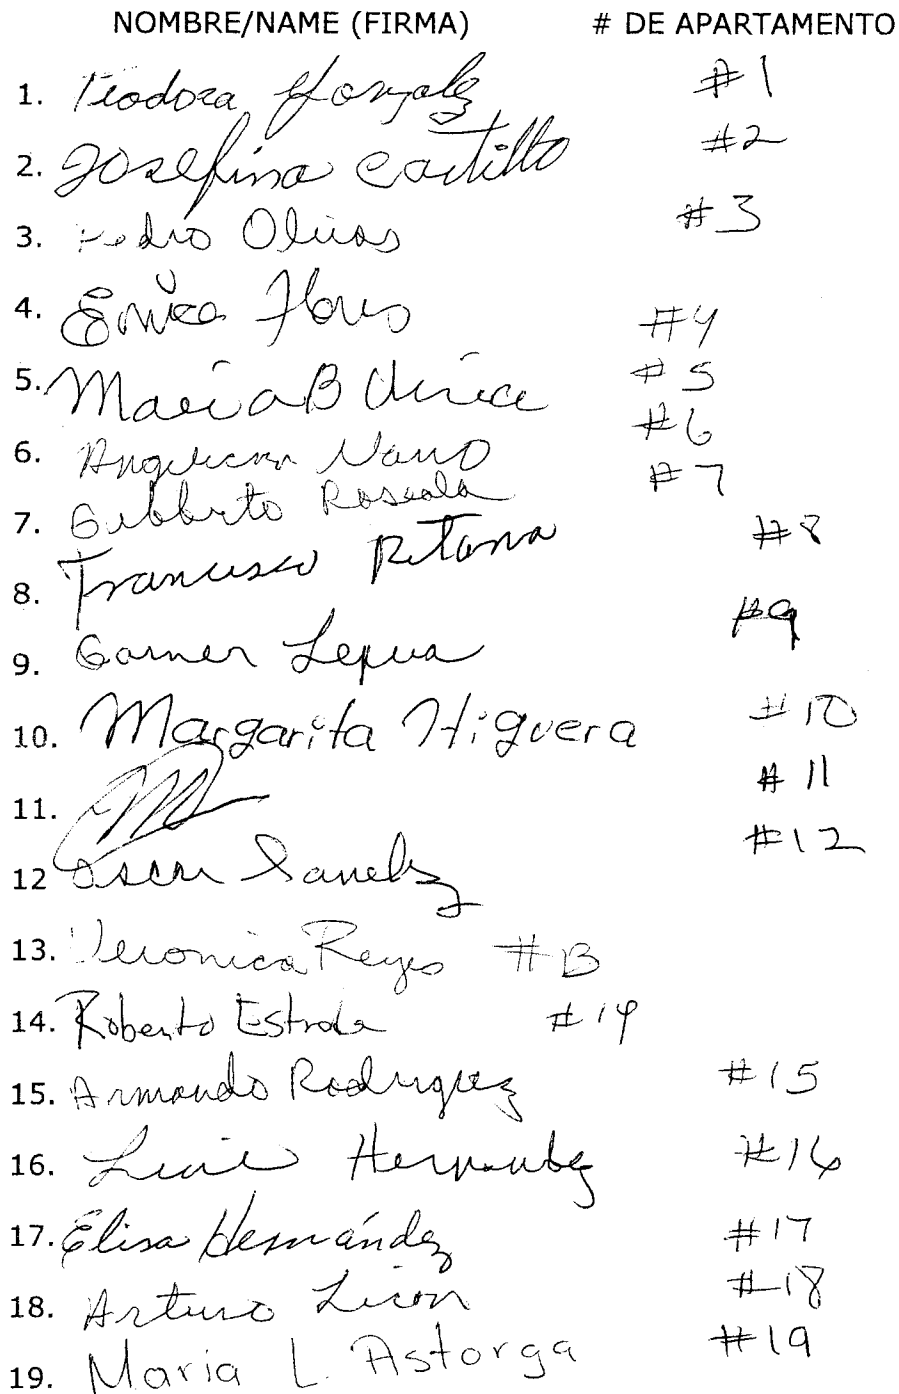 NOMBRE/NAME (FIRMA) # DE APARTAMENTO
1. Teodora Gonzalez #1
2. Josefina Castillo #2
3. Pedro Olivas #3
4. Erica Flores #4
5. Maria B #5
6. Angelica #6
7. Gilberto #7
8. Francisco Retana #8
9. #9
10. Margarita Higuera #10
11. #11
12 Oscar Sanchez #12
13. Veronica Reyes #13
14. Roberto Estrada #14
15. Armando Rodriguez #15
16. Hernandez #16
17. Elisa Hernández #17
18. Arturo Licon #18
19. Maria L. Astorga #19